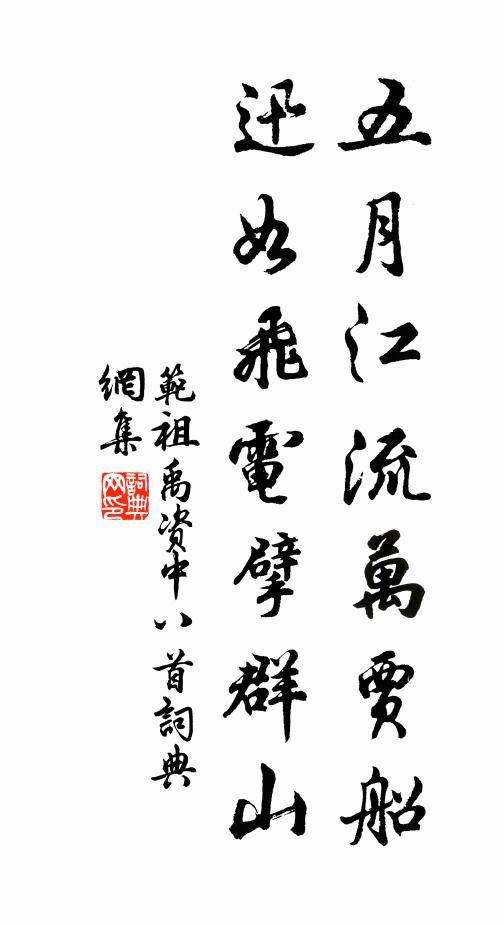 五月江流萬賈船
迅如飛電擘群山
範祖禹资中八首詞典
網集
詞典
网印